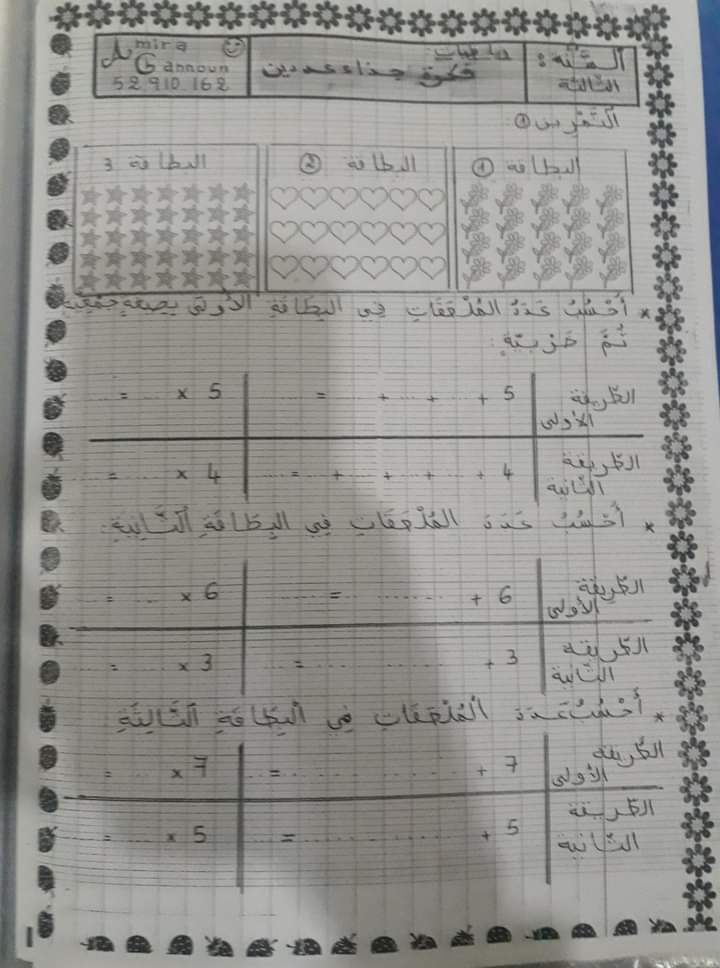 السّنة: الثالثة
رياضيات
فكرة جذاء عددين
Amira Gannoun
52 910 162
التمرين ①
البطاقة ① البطاقة ② البطاقة 3
* أَحْسُبُ عَدَدَ المُلْصَقَاتِ فِي البِطَاقَةِ الأُولَى بِصِيغَةٍ جَمْعِيَّةٍ
ثُمَّ ضَرْبِيَّة:
الطّريقة الأولى 5 + .... + .... + .... = .... 5 × .... = ....
الطّريقة الثانية 4 + .... + .... + .... + .... = .... 4 × .... = ....
* أَحْسُبُ عَدَدَ المُلْصَقَاتِ فِي البِطَاقَةِ الثَّانِيَةِ:
الطّريقة الأولى 6 + ........ = .... 6 × .... = ....
الطّريقة الثانية 3 + ........ = .... 3 × .... = ....
* أَحْسُبُ عَدَدَ الْمُلْصَقَاتِ فِي الْبِطَاقَةِ الثَّالِثَةِ
الطّريقة الأولى 7 + ........ = .... 7 × .... = ....
الطّريقة الثانية 5 + ........ = .... 5 × .... = ....
1